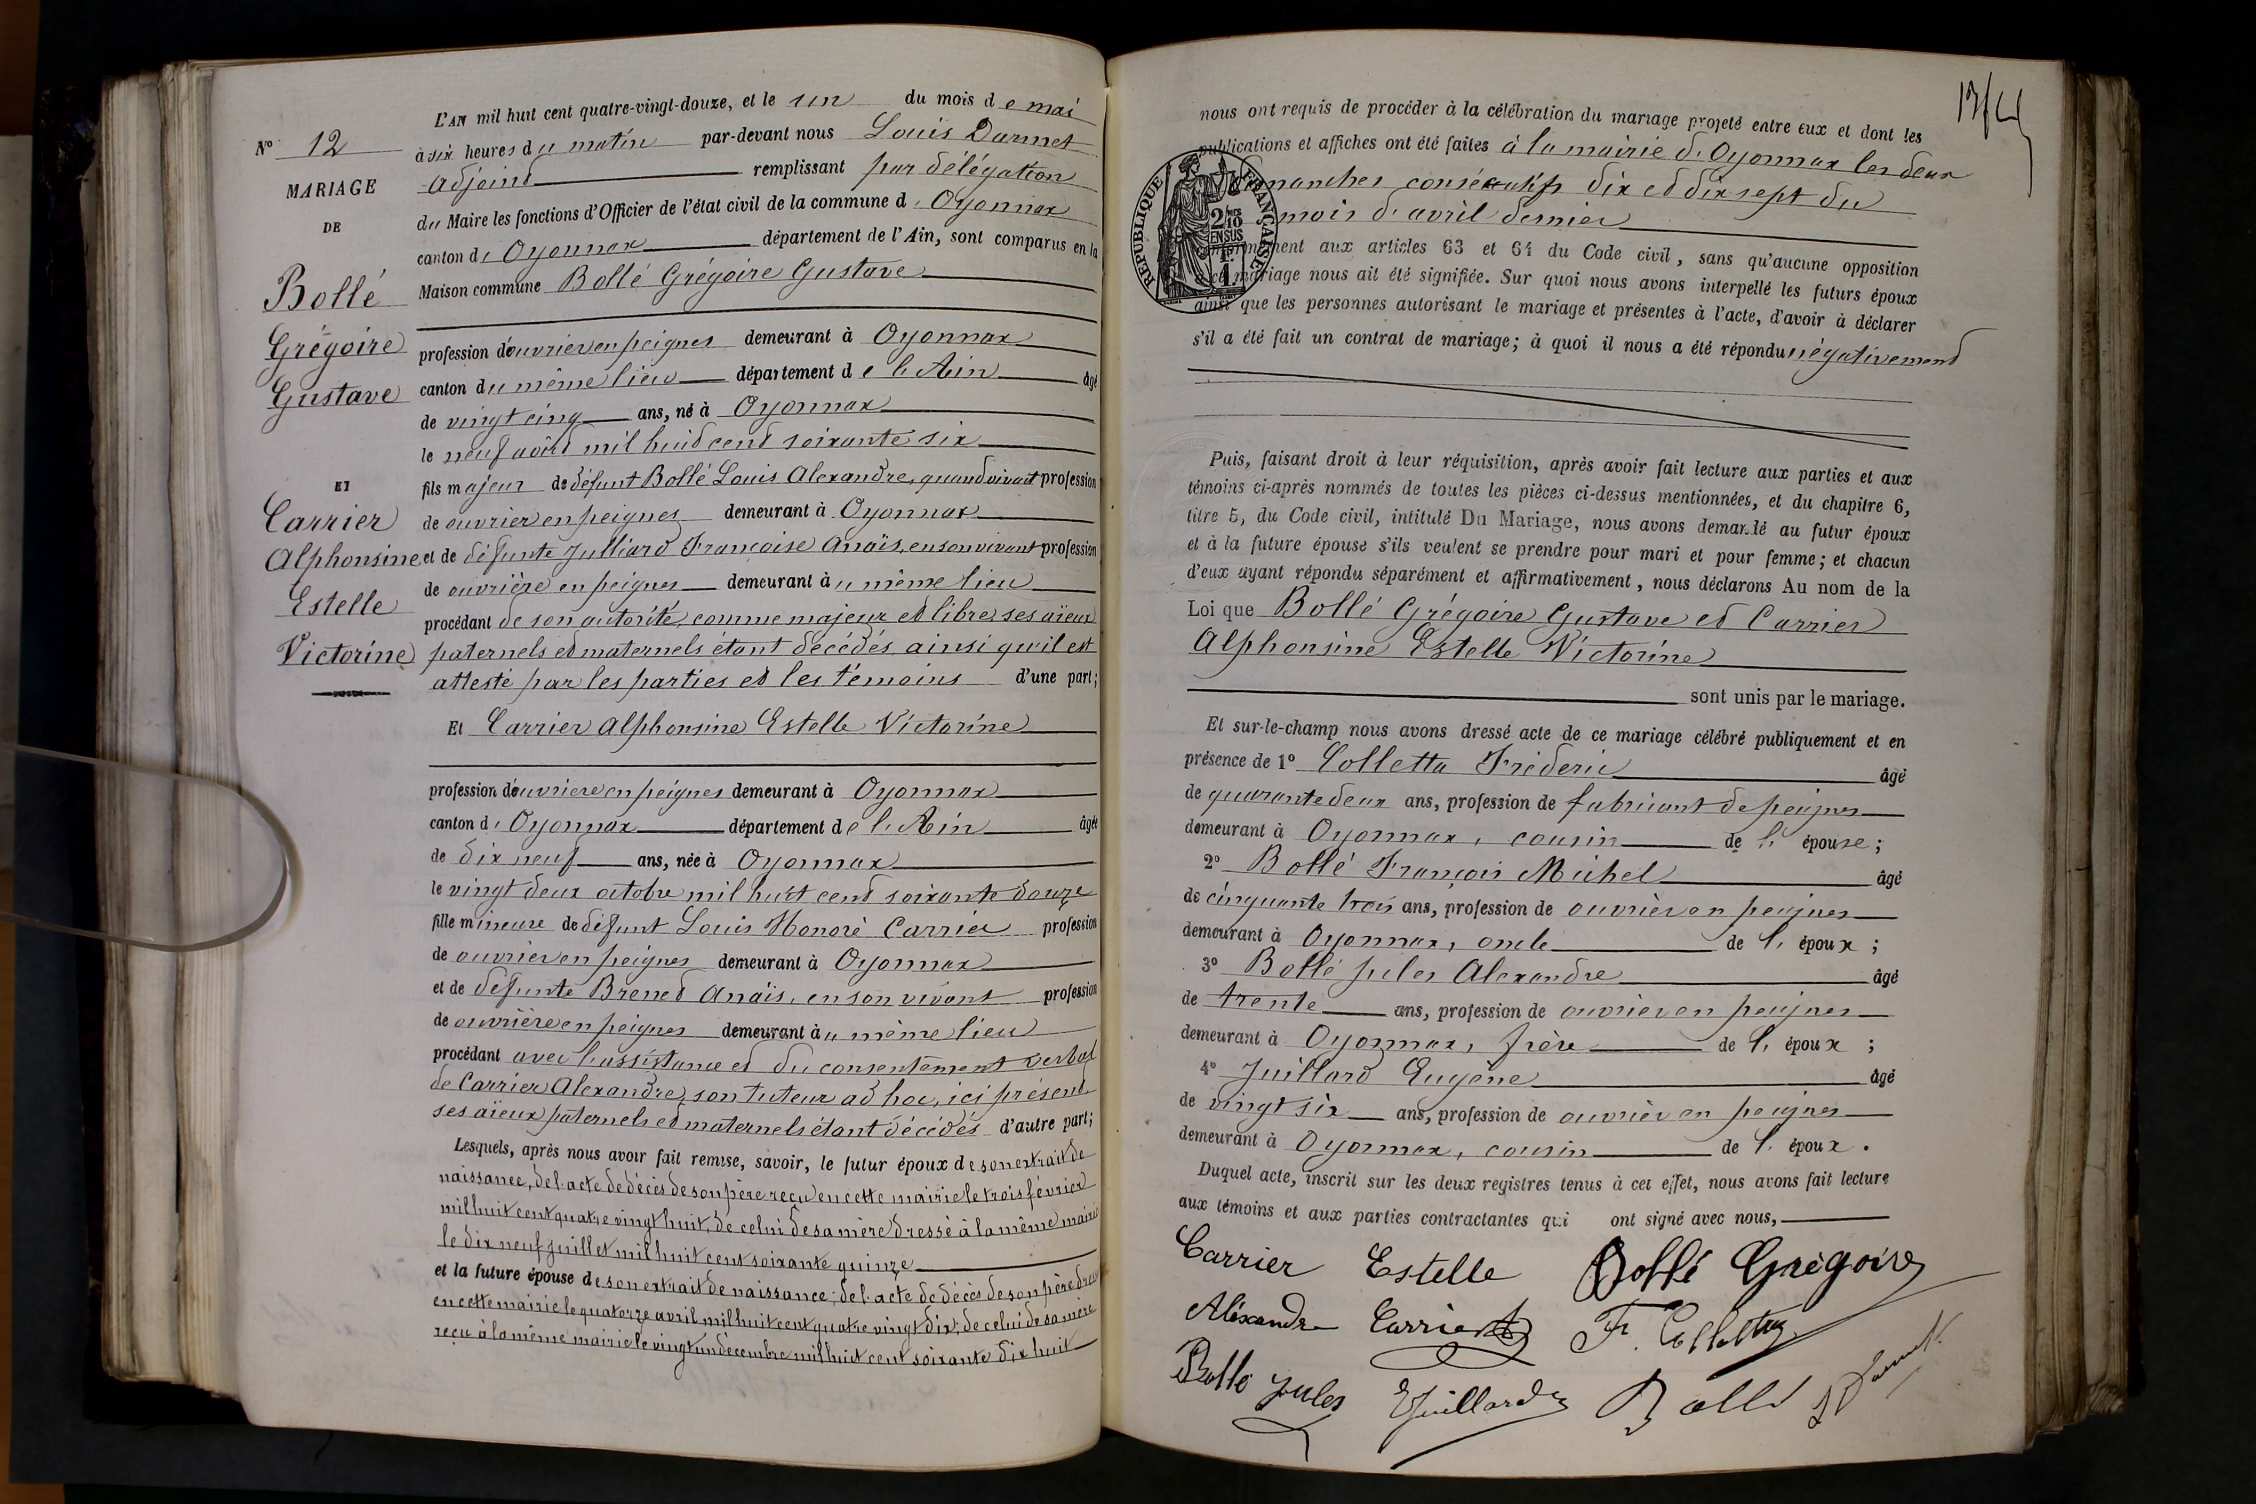 N° 12
MARIAGE
DE
Bollé
Grégoire
Gustave
ET
Carrier
Alphonsine
Estelle
Victorine
L'AN mil huit cent quatre-vingt-douze, et le un du mois de mai
à six heures du matin par-devant nous Louis Darmet
adjoint remplissant par délégation
du Maire les fonctions d'Officier de l'état civil de la commune d'Oyonnax
canton d'Oyonnax département de l'Ain, sont comparus en la
Maison commune Bollé Grégoire Gustave
profession d'ouvrier en peignes demeurant à Oyonnax
canton du même lieu département de l'Ain âgé
de vingt cinq ans, né à Oyonnax
le neuf août mil huit cent soixante six
fils majeur de défunt Bollé Louis Alexandre, quand vivait profession
de ouvrier en peignes demeurant à Oyonnax
et de défunte Julliard Françoise Anaïs, en son vivant profession
de ouvrière en peignes demeurant au même lieu
procédant de son autorité, comme majeur et libre, ses aïeux
paternels et maternels étant décédés ainsi qu'il est
attesté par les parties et les témoins d'une part;
Et Carrier Alphonsine Estelle Victorine
profession d'ouvrière en peignes demeurant à Oyonnax
canton d'Oyonnax département de l'Ain âgée
de dix neuf ans, née à Oyonnax
le vingt deux octobre mil huit cent soixante douze
fille mineure de défunt Louis Honoré Carrier profession
de ouvrier en peignes demeurant à Oyonnax
et de défunte Brenet Anaïs, en son vivant profession
de ouvrière en peignes demeurant au même lieu
procédant avec l'assistance et du consentement verbal
de Carrier Alexandre, son tuteur ad hoc, ici présent
ses aïeux paternels et maternels étant décédés d'autre part;
Lesquels, après nous avoir fait remise, savoir, le futur époux de son extrait de
naissance, de l'acte de décès de son père reçu en cette mairie le trois février
mil huit cent quatre vingt huit, de celui de sa mère dressé à la même mairie
le dix neuf juillet mil huit cent soixante quinze
et la future épouse de son extrait de naissance; de l'acte de décès de son père dressé
en cette mairie le quatorze avril mil huit cent quatre vingt dix; de celui de sa mère
reçu à la même mairie le vingt un décembre mil huit cent soixante dix huit
nous ont requis de procéder à la célébration du mariage projeté entre eux et dont les
publications et affiches ont été faites à la mairie d'Oyonnax les deux
dimanches consécutifs dix et dix sept du
mois d'avril dernier
conformément aux articles 63 et 64 du Code civil, sans qu'aucune opposition
au mariage nous ait été signifiée. Sur quoi nous avons interpellé les futurs époux
ainsi que les personnes autorisant le mariage et présentes à l'acte, d'avoir à déclarer
s'il a été fait un contrat de mariage; à quoi il nous a été répondu négativement
RÉPUBLIQUE FRANÇAISE
2/10
EN SUS
Puis, faisant droit à leur réquisition, après avoir fait lecture aux parties et aux
témoins ci-après nommés de toutes les pièces ci-dessus mentionnées, et du chapitre 6,
titre 5, du Code civil, intitulé Du Mariage, nous avons demandé au futur époux
et à la future épouse s'ils veulent se prendre pour mari et pour femme; et chacun
d'eux ayant répondu séparément et affirmativement, nous déclarons Au nom de la
Loi que Bollé Grégoire Gustave et Carrier
Alphonsine Estelle Victorine
sont unis par le mariage.
Et sur-le-champ nous avons dressé acte de ce mariage célébré publiquement et en
présence de 1° Colletta Fréderic âgé
de quarante deux ans, profession de fabricant de peignes
demeurant à Oyonnax, cousin de l'épouse;
2° Bollé François Michel âgé
de cinquante trois ans, profession de ouvrier en peignes
demeurant à Oyonnax, oncle de l'époux;
3° Bollé Jules Alexandre âgé
de trente ans, profession de ouvrier en peignes
demeurant à Oyonnax, frère de l'époux;
4° Juillard Eugène âgé
de vingt six ans, profession de ouvrier en peignes
demeurant à Oyonnax, cousin de l'époux.
Duquel acte, inscrit sur les deux registres tenus à cet effet, nous avons fait lecture
aux témoins et aux parties contractantes qui ont signé avec nous,
Carrier Estelle Bollé Grégoire
Alexandre Carrier F. Colletta
Bollé Jules EJuillard Bollé LDarmet